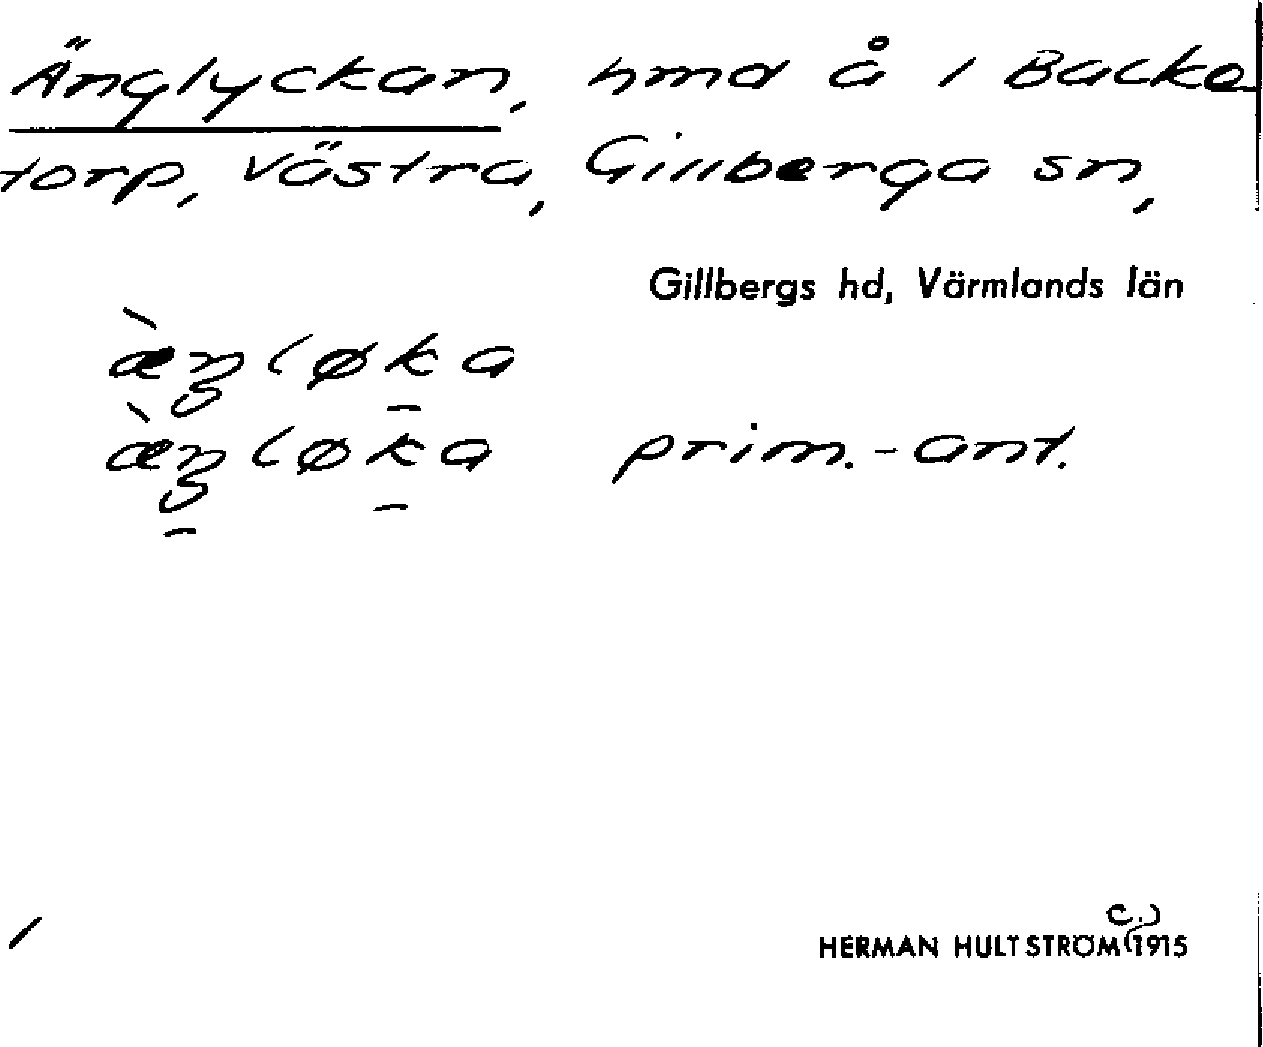 Änglyckan, hmd å 1 Backe-
torp, Västra, Gillberga sn,
Gillbergs hd, Värmlands län
æ̀ŋløka
æ̀ŋløka prim.-ant.
HERMAN HULTSTRÖM (c.) 1915